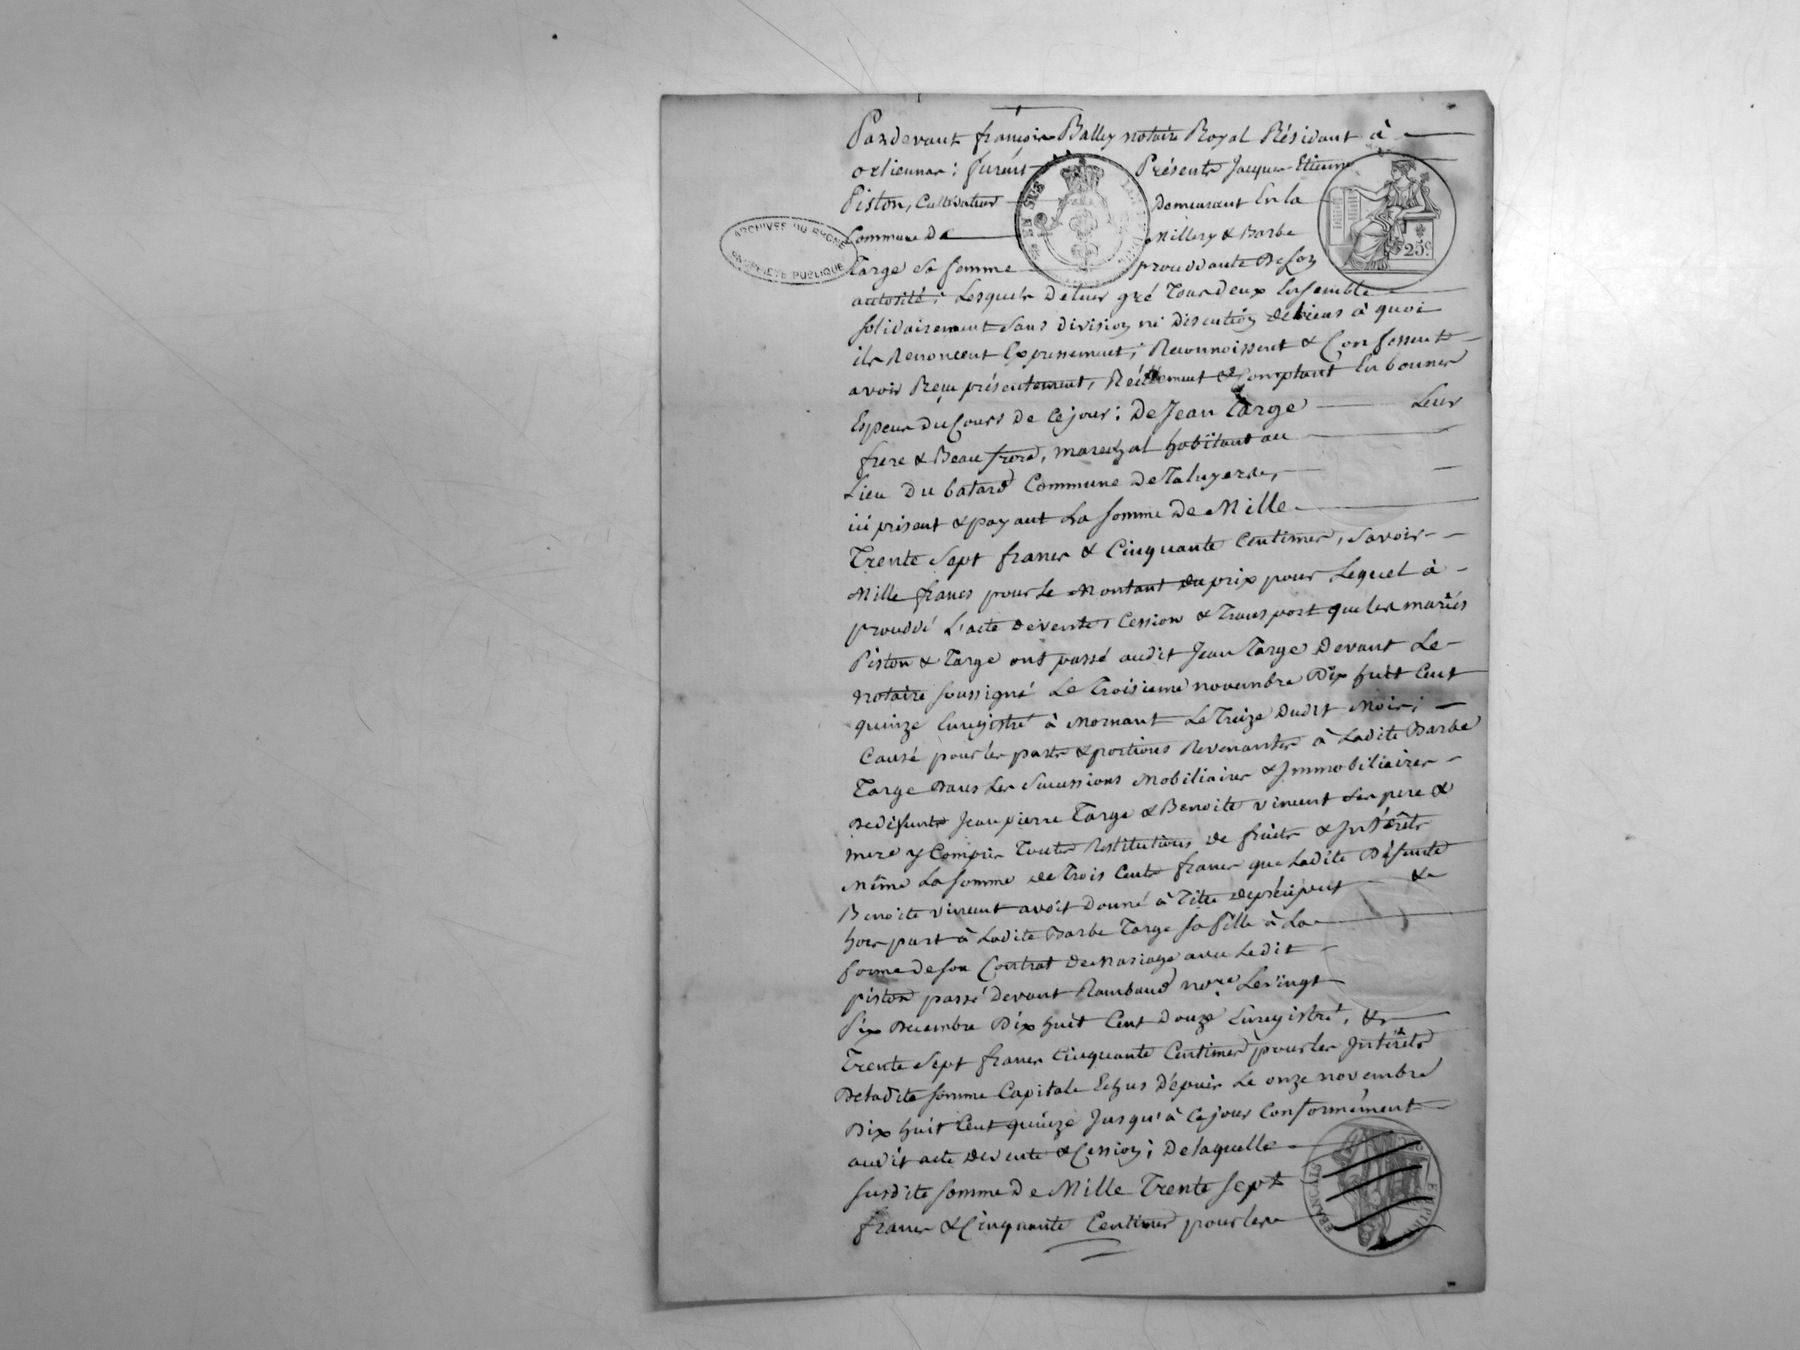 Pardevant françois Balley notaire Royal Résidant à
orliennas: furent Présents Jacques Etienne
Piston, Cultivateur Demeurant En la
Commune De Millery & Barbe
Targe sa femme procédante De son
autorité; Lesquels de leur gré Tous deux Ensemble
solidairement sans division ni discution de biens à quoi
ils Renoncent Expressement; Reconnoissent & Confessent
avoir Reçu présentement, Réellement & Comptant En bonnes
Especes du Cours de Ce jour: De Jean Targe Leur
frere & Beau frere, marechal habitant au
Lieu du batard Commune de Taluyers,
ici présent & payant La somme De Mille
Trente sept francs & Cinquante Centimes, savoir
Mille francs pour Le Montant du prix pour Lequel à
procédé L'acte de vente, Cession & Transport que les mariés
Piston & Targe ont passé audit Jean Targe Devant Le
notaire soussigné Le Troisieme novembre Dix huit Cent
quinze Enregistré à Mornant Le Treize Dudit Mois;
Causé pour les parts & portions Revenantes à Ladite Barbe
Targe Dans Les Successions Mobiliaires & Immobiliaires
De défunts Jean pierre Targe & Benoite vincent ses pere &
mere y Compris Toutes Restitutions de fruits & Intérêts
Même La somme de Trois Cents francs que Ladite Défunte
Benoite vincent avoit Donné à Titre de préciput &
hors part à Ladite Barbe Targe sa fille à La
forme de son Contrat de Mariage avec Ledit
piston passé devant Rambaud no.re Le vingt
six Decembre Dix huit Cent Douze Enregistré, &
Trente Sept francs Cinquante Centimes pour les Intérêts
De Ladite somme Capitale Echus Depuis Le onze novembre
Dix huit Cent quinze Jusqu'à Ce jour Conformément
audit acte de vente & Cession; De Laquelle
susdite somme De Mille Trente sept
francs & Cinquante Centimes pour les
ARCHIVES DU RHONE
PROPRIÉTÉ PUBLIQUE
EN SUS
25c.
EMPIRE
FRANÇAIS